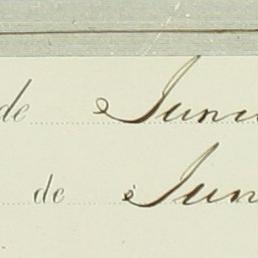 de Juni
de Jun